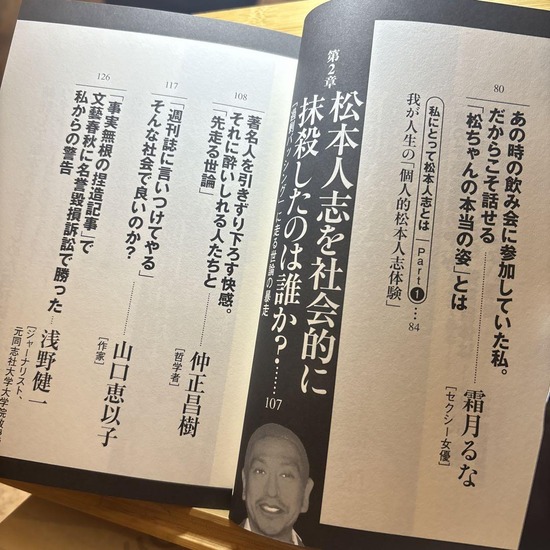 80
あの時の飲み会に参加していた私。
だからこそ話せる
「松ちゃんの本当の姿」とは
霜月るな
[セクシー女優]
私にとって松本人志とは Part 1 …
我が人生の「個人的松本人志体験」
84
第2章
松本人志を社会的に
抹殺したのは誰か?……
107
に走る世論の暴走
108
著名人を引きずり下ろす快感。
それに酔いしれる人たちと
「先走る世論」
仲正昌樹
[哲学者]
117
「週刊誌に言いつけてやる」
そんな社会で良いのか?
山口恵以子
[作家]
126
「事実無根の捏造記事」で
文藝春秋に名誉毀損訴訟で勝った
私からの警告
浅野健一
[ジャーナリスト、
元同志社大学大学院